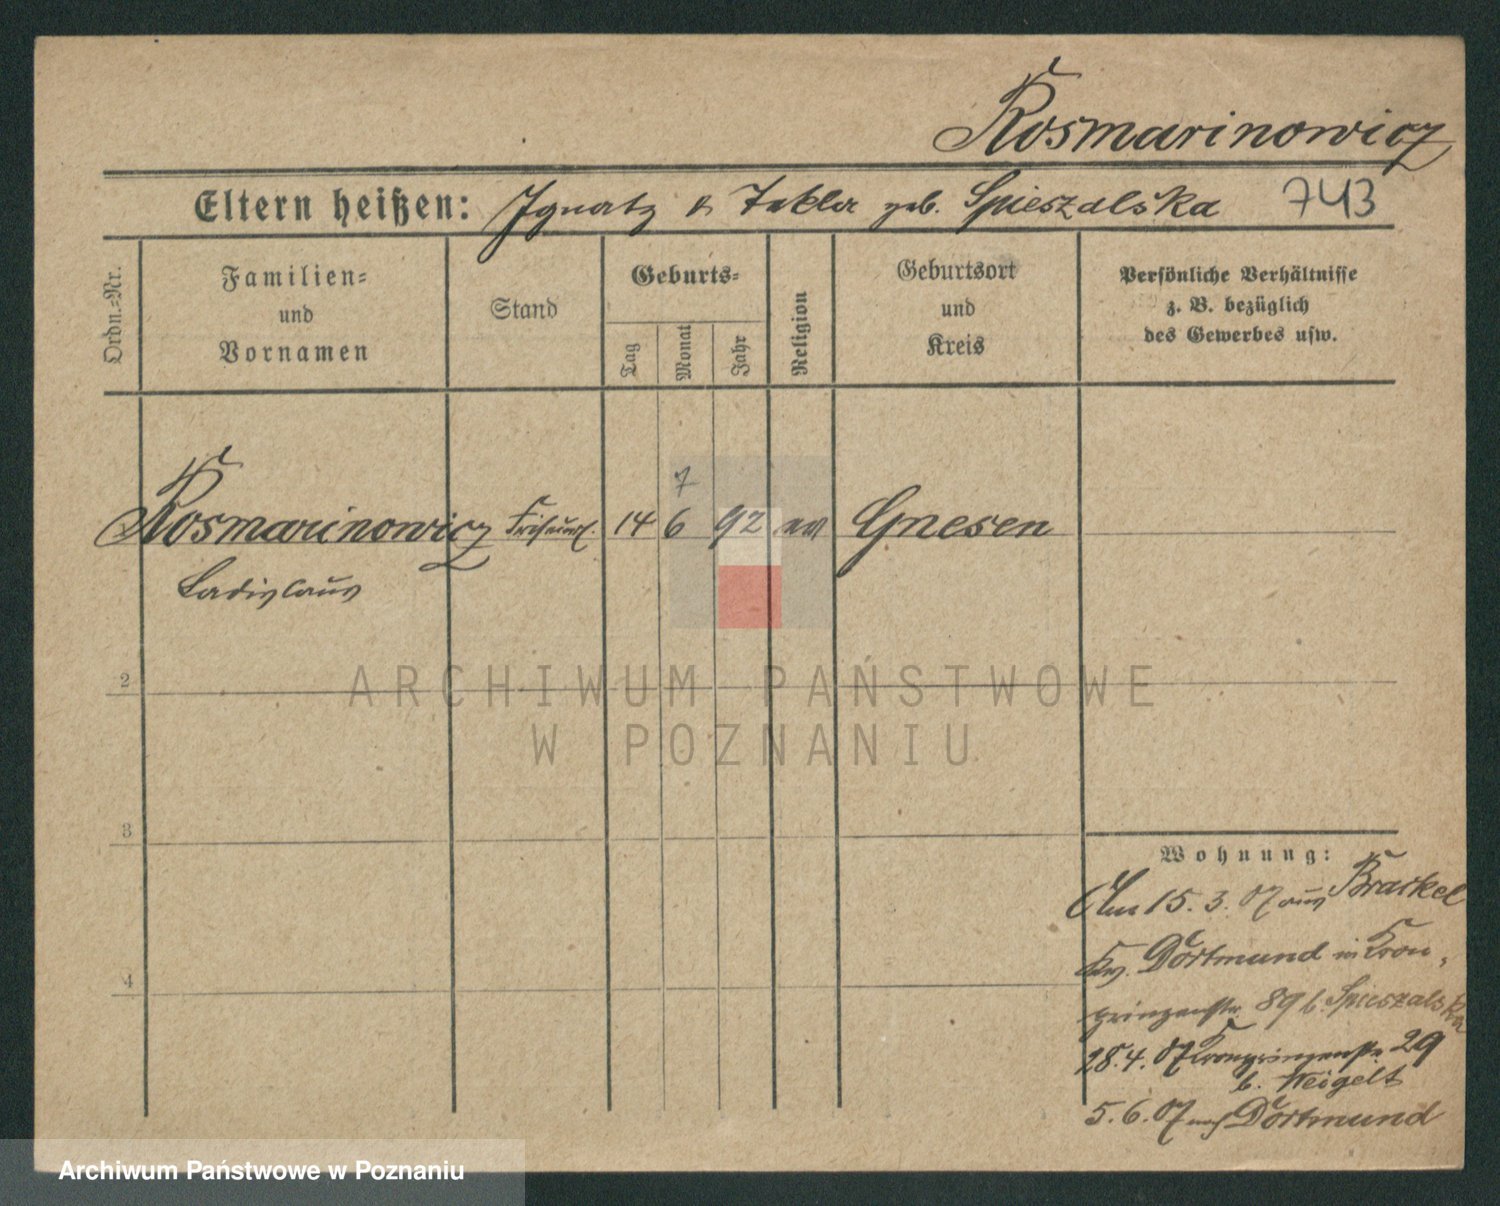 Rosmarinowicz
Eltern heißen: Ignatz & Tekla geb. Spieszalska 743
Ordn.=Nr.
Familien=
und
Vornamen
Stand
Geburts=
Tag
Monat
Jahr
Religion
Geburtsort
und
Kreis
Persönliche Verhältnisse
z. B. bezüglich
des Gewerbes usw.
7
Rosmarinowicz Friseurl. 14 6 92 Gnesen
Ladislaus
2
ARCHIWUM PAŃSTWOWE
W POZNANIU
3
Wohnung:
Am 15.3.07 aus Brackel
Krs. Dortmund in Kron-
prinzenstr. 89 b. Spieszalska
28.4.07 Kronprinzenstr. 29
b. Weigelt
4
5.6.07 nach Dortmund
Archiwum Państwowe w Poznaniu